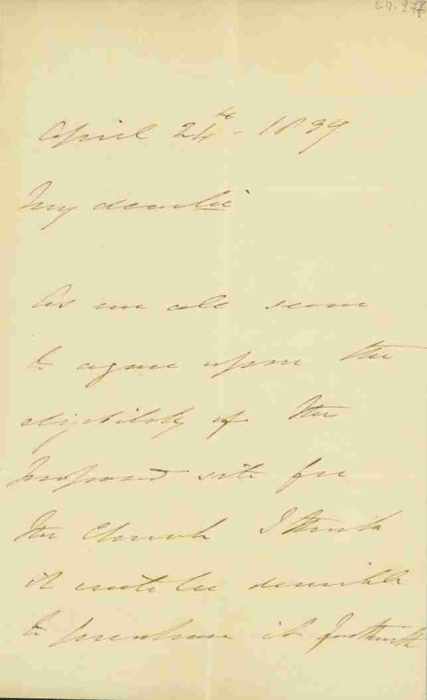 April 24th. 1839
My dear Sir
As we all seem
to agree upon the
eligibility of the
proposed site for
the Church I think
it will be desirable
to purchase it forthwith